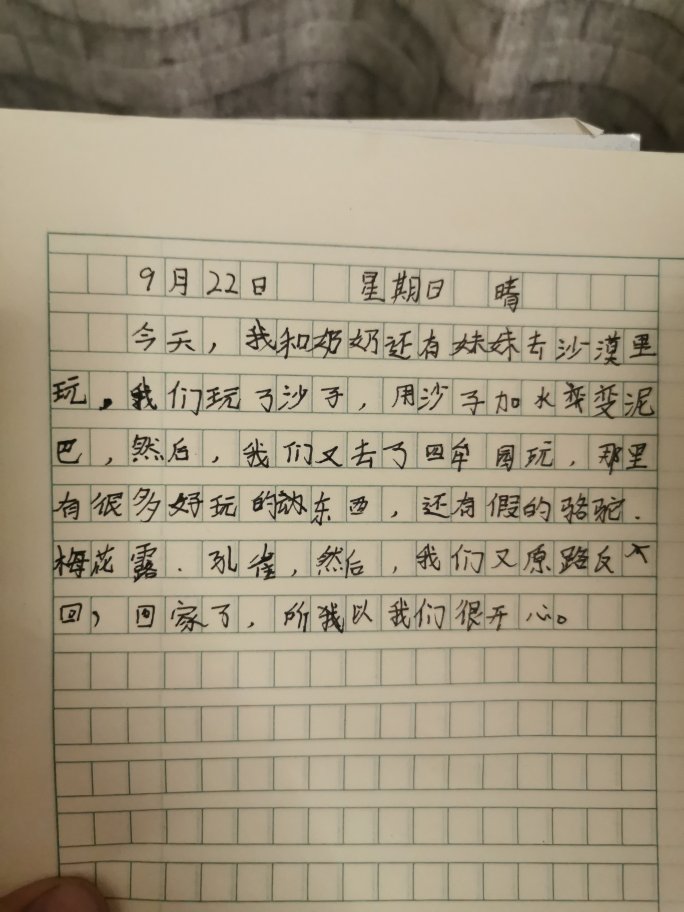 9月22日 星期日 晴
今天，我和奶奶还有妹妹去沙漠里
玩。我们玩了沙子，用沙子加水变变泥
巴，然后，我们又去了四牟园玩，那里
有很多好玩的东西，还有假的骆驼.
梅花露.孔雀，然后，我们又原路反
回，回家了，所我以我们很开心。